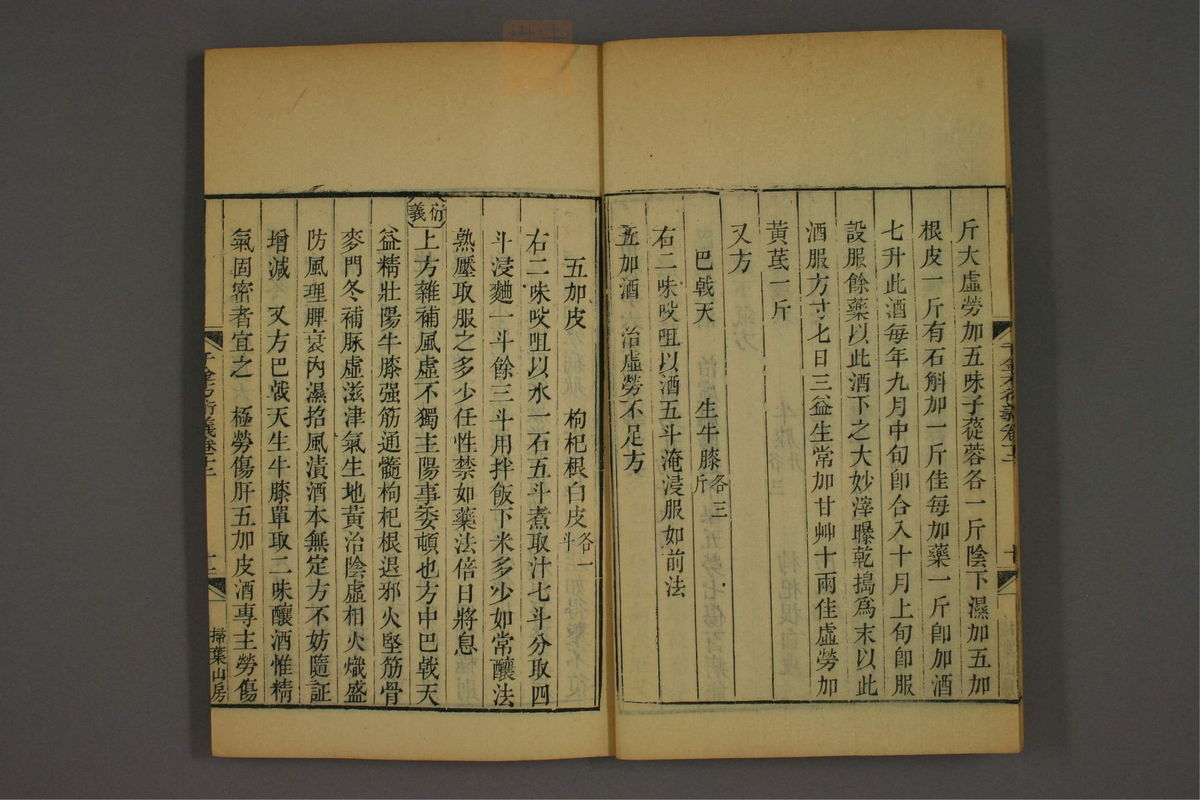 斤大虛勞加五味子蓯蓉各一斤陰下濕加五加
根皮一斤有石斛加一斤佳每加藥一斤卽加酒
七升此酒每年九月中旬卽合入十月上旬卽服
設服餘藥以此酒下之大妙滓曝乾搗爲末以此
酒服方寸七日三益生常加甘艸十兩佳虛勞加
黃芪一斤
又方
巴戟天 生牛膝各三斤
右二味㕮咀以酒五斗淹浸服如前法
五加酒 治虛勞不足方
五加皮 枸杞根白皮各一斗
右二味㕮咀以水一石五斗煮取汁七斗分取四
斗浸麯一斗餘三斗用拌飯下米多少如常釀法
熟壓取服之多少任性禁如藥法倍日將息
衍義 上方雜補風虛不獨主陽事委頓也方中巴戟天
益精壯陽牛膝强筋通髓枸杞根退邪火堅筋骨
麥門冬補脉虛滋津氣生地黃治陰虛相火熾盛
防風理脾衰內濕招風漬酒本無定方不妨隨証
增減 又方巴戟天生牛膝單取二味釀酒惟精
氣固密者宜之 極勞傷肝五加皮酒專主勞傷
千金方衍義卷十二
十二
掃葉山房